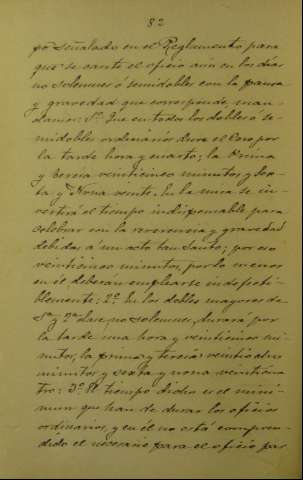 82
po señalado en el Reglamento para
que se cante el oficio aún en los días
no solemnes ó semidobles con la pausa
y gravedad que corresponde, man-
damos: 1º Que en todos los dobles o se-
midobles ordinarios dure el Coro por
la tarde hora y cuarto; la Prima
y tercia veinticinco minutos y sex-
ta y Nona veinte. En la misa se in-
vertirá el tiempo indispensable para
celebrar con la reverencia y gravedad
debidas á un acto tan Santo; por eso
veinticinco minutos, por lo menos
en él deberan emplearse indefecti-
blemente: 2º En los dobles mayores de
1ª y 2ª clase, no solemnes, durará por
la tarde una hora y veinticinco mi-
nutos, la prima y tercia veintiocho
minutos y sexta y nona veinticua
tro: 3º El tiempo dicho es el míni-
mum que han de durar los oficios
ordinarios, y en él no está compren-
dido el necesario para el oficio par